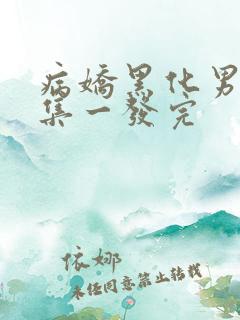 病嬌黑化男
集一發完
依娜
未经同意禁止转载